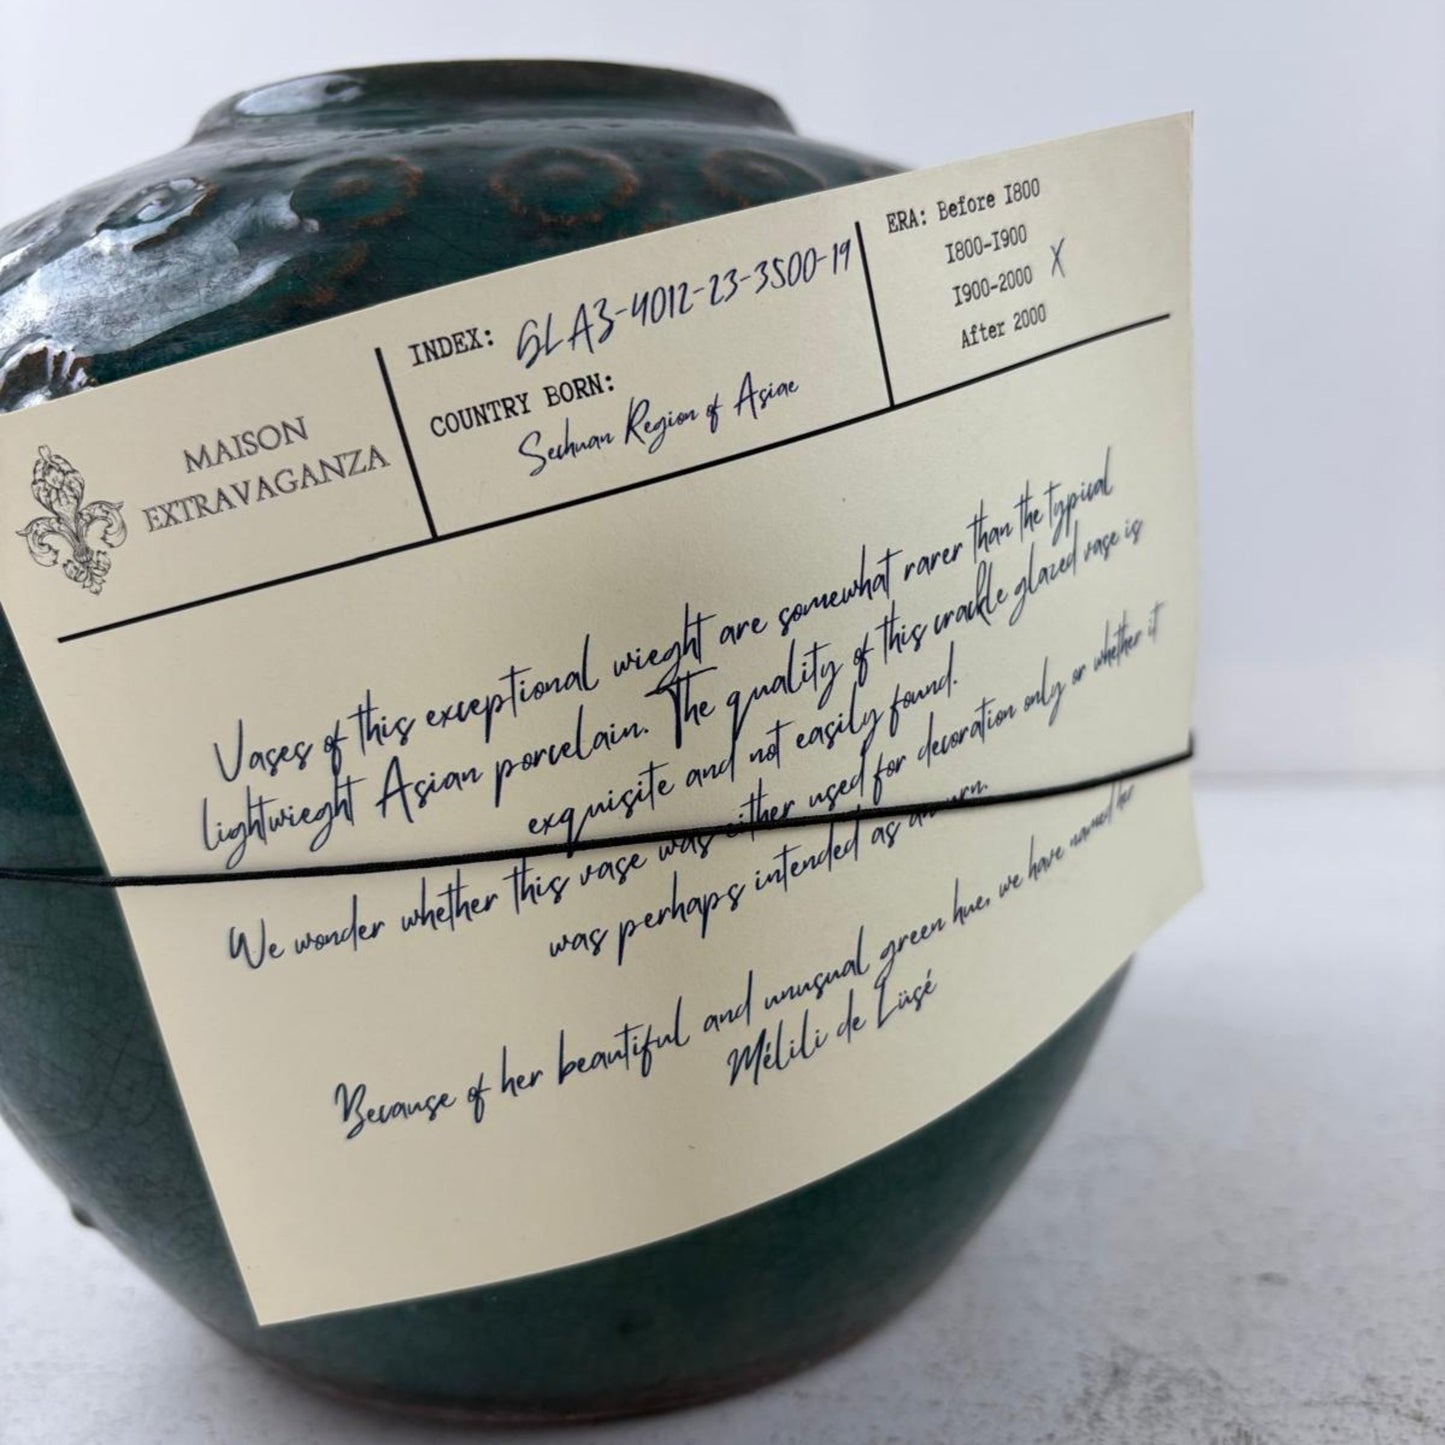 MAISON
EXTRAVAGANZA
INDEX: GLA3-4012-23-3500-19
COUNTRY BORN:
Sechuan Region of Asiae
ERA: Before 1800
1800-1900
1900-2000 X
After 2000
Vases of this exceptional wieght are somewhat rarer than the typical
lightwieght Asian porcelain. The quality of this crackle glazed vase is
exquisite and not easily found.
We wonder whether this vase was either used for decoration only or whether it
was perhaps intended as an urn.
Because of her beautiful and unusual green hue, we have named her
Mélili de Lüsé